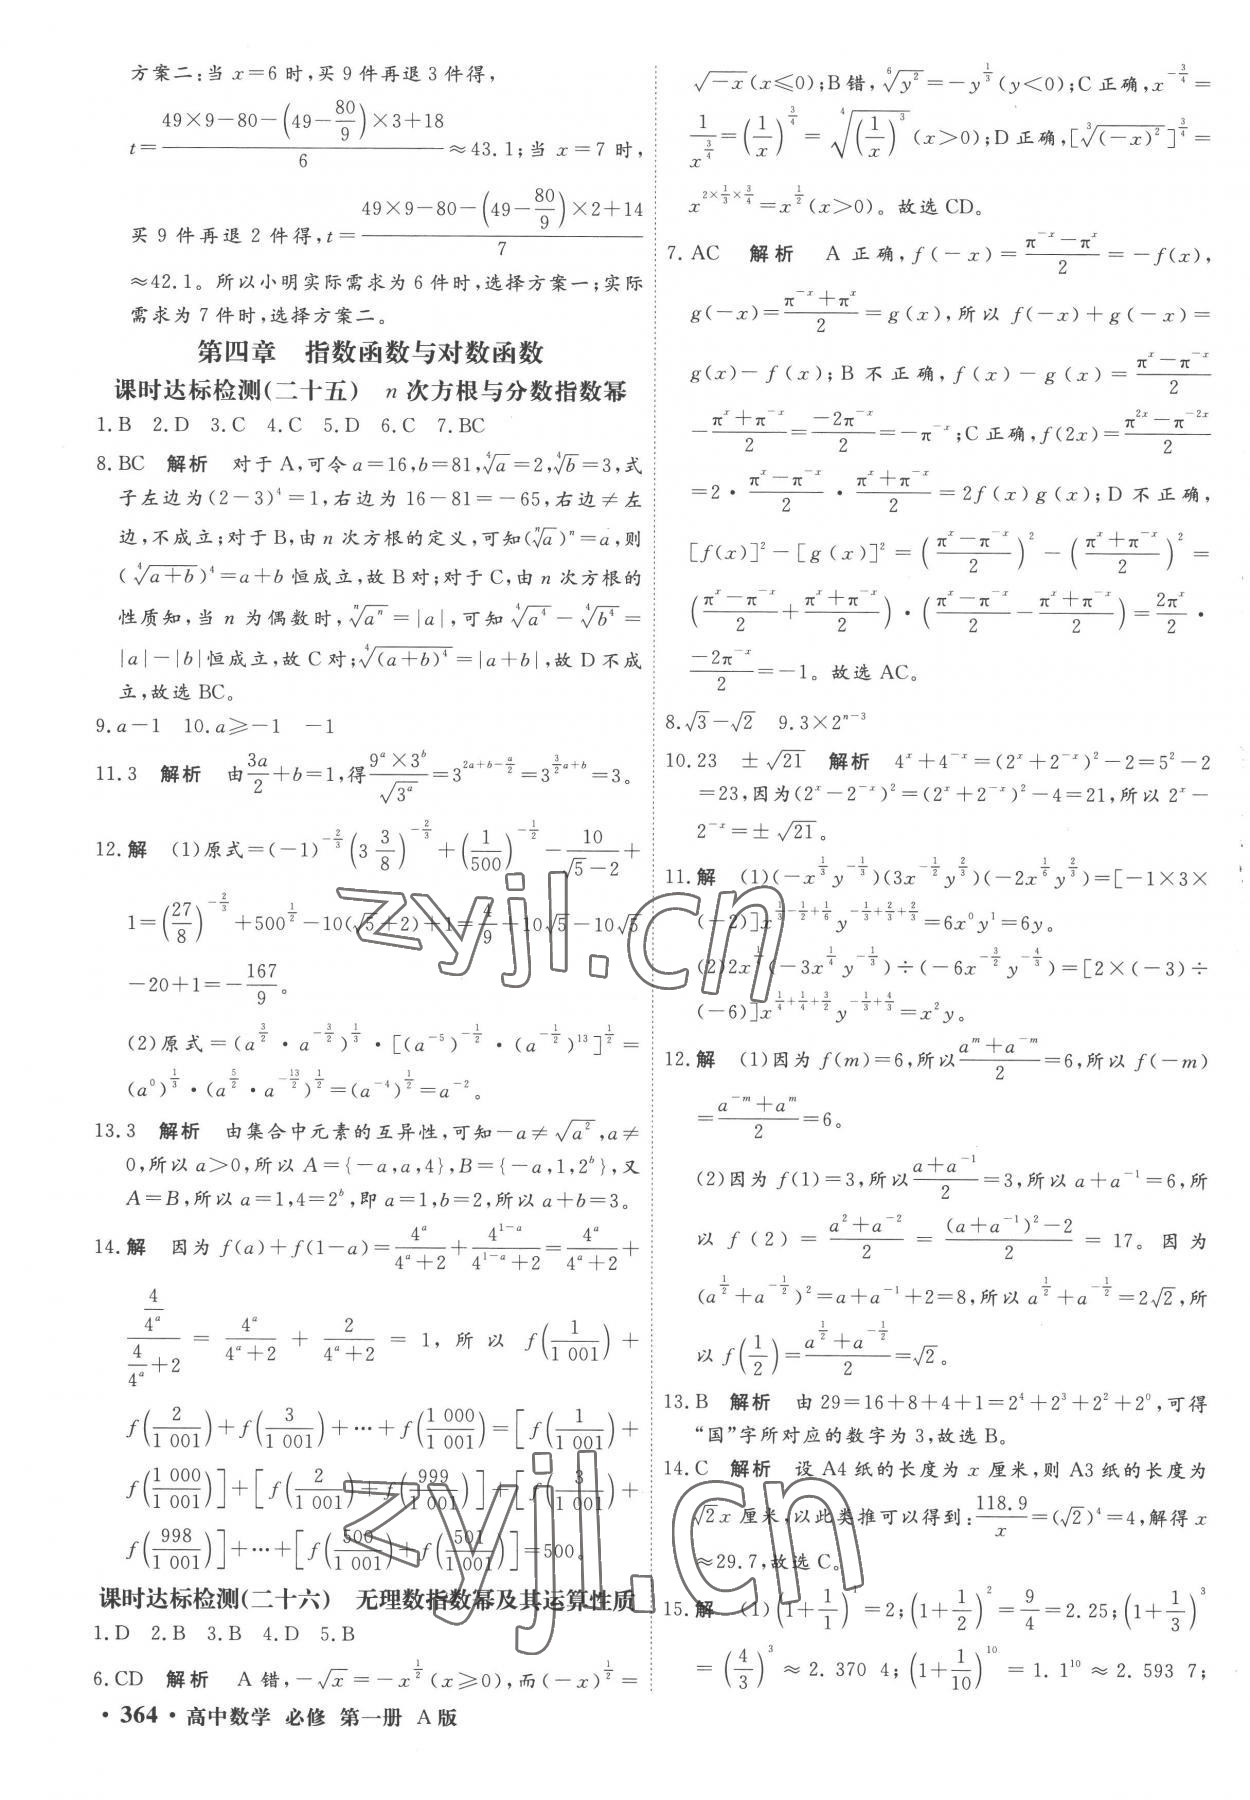 方案二:当 x=6 时,买 9 件再退 3 件得,
t=\frac{49×9-80-(49-\frac{80}{9})×3+18}{6}≈43.1;当 x=7 时,
买 9 件再退 2 件得,t=\frac{49×9-80-(49-\frac{80}{9})×2+14}{7}
≈42.1。所以小明实际需求为 6 件时,选择方案一;实际
需求为 7 件时,选择方案二。
第四章 指数函数与对数函数
课时达标检测(二十五) n 次方根与分数指数幂
1.B 2.D 3.C 4.C 5.D 6.C 7.BC
8.BC 解析 对于 A,可令 a=16,b=81,\sqrt[4]{a}=2,\sqrt[4]{b}=3,式
子左边为(2-3)^4=1,右边为 16-81=-65,右边≠左
边,不成立;对于 B,由 n 次方根的定义,可知(\sqrt[n]{a})^n=a,则
(\sqrt[4]{a+b})^4=a+b 恒成立,故 B 对;对于 C,由 n 次方根的
性质知,当 n 为偶数时,\sqrt[n]{a^n}=|a|,可知 \sqrt[4]{a^4}-\sqrt[4]{b^4}=
|a|-|b|恒成立,故 C 对;\sqrt[4]{(a+b)^4}=|a+b|,故 D 不成
立,故选 BC。
9.a-1 10.a≥-1 -1
11.3 解析 由\frac{3a}{2}+b=1,得\frac{9^a×3^b}{\sqrt{3^a}}=3^{2a+b-\frac{a}{2}}=3^{\frac{3}{2}a+b}=3。
12.解 (1)原式=(-1)^{-\frac{2}{3}}(3\frac{3}{8})^{-\frac{2}{3}}+(\frac{1}{500})^{-\frac{1}{2}}-\frac{10}{\sqrt{5}-2}+
1=(\frac{27}{8})^{-\frac{2}{3}}+500^{\frac{1}{2}}-10(\sqrt{5}+2)+1=\frac{4}{9}+10\sqrt{5}-10\sqrt{5}
-20+1=-\frac{167}{9}。
(2)原式=(a^{\frac{3}{2}}·a^{-\frac{3}{2}})^{\frac{1}{3}}·[(a^{-5})^{-\frac{1}{2}}·(a^{-\frac{1}{2}})^{13}]^{\frac{1}{2}}=
(a^0)^{\frac{1}{3}}·(a^{\frac{5}{2}}·a^{-\frac{13}{2}})^{\frac{1}{2}}=(a^{-4})^{\frac{1}{2}}=a^{-2}。
13.3 解析 由集合中元素的互异性,可知-a≠\sqrt{a^2},a≠
0,所以 a>0,所以 A={-a,a,4},B={-a,1,2^b},又
A=B,所以 a=1,4=2^b,即 a=1,b=2,所以 a+b=3。
14.解 因为 f(a)+f(1-a)=\frac{4^a}{4^a+2}+\frac{4^{1-a}}{4^{1-a}+2}=\frac{4^a}{4^a+2}+
\frac{\frac{4}{4^a}}{\frac{4}{4^a}+2}=\frac{4^a}{4^a+2}+\frac{2}{4^a+2}=1,所以 f(\frac{1}{1 001})+
f(\frac{2}{1 001})+f(\frac{3}{1 001})+…+f(\frac{1 000}{1 001})=[f(\frac{1}{1 001})+
f(\frac{1 000}{1 001})]+[f(\frac{2}{1 001})+f(\frac{999}{1 001})]+[f(\frac{3}{1 001})+
f(\frac{998}{1 001})]+…+[f(\frac{500}{1 001})+f(\frac{501}{1 001})]=500。
课时达标检测(二十六) 无理数指数幂及其运算性质
1.D 2.B 3.B 4.D 5.B
6.CD 解析 A 错,-\sqrt{x}=-x^{\frac{1}{2}}(x≥0),而(-x)^{\frac{1}{2}}=
• 364 • 高中数学 必修 第一册 A 版
\sqrt{-x}(x≤0);B 错,\sqrt[6]{y^2}=-y^{\frac{1}{3}}(y<0);C 正确,x^{-\frac{3}{4}}=
\frac{1}{x^{\frac{3}{4}}}=(\frac{1}{x})^{\frac{3}{4}}=\sqrt[4]{(\frac{1}{x})^3}(x>0);D 正确,[\sqrt[3]{(-x)^2}]^{\frac{3}{4}}=
x^{2×\frac{1}{3}×\frac{3}{4}}=x^{\frac{1}{2}}(x>0)。故选 CD。
7.AC 解析 A 正确,f(-x)=\frac{π^{-x}-π^x}{2}=-f(x),
g(-x)=\frac{π^{-x}+π^x}{2}=g(x),所以 f(-x)+g(-x)=
g(x)-f(x);B 不正确,f(x)-g(x)=\frac{π^x-π^{-x}}{2}
-\frac{π^x+π^{-x}}{2}=\frac{-2π^{-x}}{2}=-π^{-x};C 正确,f(2x)=\frac{π^{2x}-π^{-2x}}{2}
=2·\frac{π^x-π^{-x}}{2}·\frac{π^x+π^{-x}}{2}=2f(x)g(x);D 不正确,
[f(x)]^2-[g(x)]^2=(\frac{π^x-π^{-x}}{2})^2-(\frac{π^x+π^{-x}}{2})^2=
(\frac{π^x-π^{-x}}{2}+\frac{π^x+π^{-x}}{2})·(\frac{π^x-π^{-x}}{2}-\frac{π^x+π^{-x}}{2})=\frac{2π^x}{2}·
\frac{-2π^{-x}}{2}=-1。故选 AC。
8.\sqrt{3}-\sqrt{2} 9.3×2^{n-3}
10.23 ±\sqrt{21} 解析 4^x+4^{-x}=(2^x+2^{-x})^2-2=5^2-2
=23,因为(2^x-2^{-x})^2=(2^x+2^{-x})^2-4=21,所以 2^x-
2^{-x}=±\sqrt{21}。
11.解 (1)(-x^{\frac{1}{3}}y^{-\frac{1}{3}})(3x^{-\frac{1}{2}}y^{\frac{2}{3}})(-2x^{\frac{1}{6}}y^{\frac{2}{3}})=[-1×3×
(-2)]x^{\frac{1}{3}-\frac{1}{2}+\frac{1}{6}}y^{-\frac{1}{3}+\frac{2}{3}+\frac{2}{3}}=6x^0y^1=6y。
(2)2x^{\frac{1}{4}}(-3x^{\frac{1}{4}}y^{-\frac{1}{3}})÷(-6x^{-\frac{3}{2}}y^{-\frac{4}{3}})=[2×(-3)÷
(-6)]x^{\frac{1}{4}+\frac{1}{4}+\frac{3}{2}}y^{-\frac{1}{3}+\frac{4}{3}}=x^2y。
12.解 (1)因为 f(m)=6,所以\frac{a^m+a^{-m}}{2}=6,所以 f(-m)
=\frac{a^{-m}+a^m}{2}=6。
(2)因为 f(1)=3,所以\frac{a+a^{-1}}{2}=3,所以 a+a^{-1}=6,所
以 f(2)=\frac{a^2+a^{-2}}{2}=\frac{(a+a^{-1})^2-2}{2}=17。因为
(a^{\frac{1}{2}}+a^{-\frac{1}{2}})^2=a+a^{-1}+2=8,所以 a^{\frac{1}{2}}+a^{-\frac{1}{2}}=2\sqrt{2},所
以 f(\frac{1}{2})=\frac{a^{\frac{1}{2}}+a^{-\frac{1}{2}}}{2}=\sqrt{2}。
13.B 解析 由 29=16+8+4+1=2^4+2^3+2^2+2^0,可得
“国”字所对应的数字为 3,故选 B。
14.C 解析 设 A4 纸的长度为 x 厘米,则 A3 纸的长度为
\sqrt{2}x 厘米,以此类推可以得到:\frac{118.9}{x}=(\sqrt{2})^4=4,解得 x
≈29.7,故选 C。
15.解 (1)(1+\frac{1}{1})^1=2;(1+\frac{1}{2})^2=\frac{9}{4}=2.25;(1+\frac{1}{3})^3
=(\frac{4}{3})^3≈2.370 4;(1+\frac{1}{10})^{10}=1.1^{10}≈2.593 7;
zyjl.cn
zyjl.cn